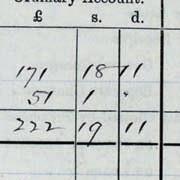 Ordinary Account.
£ s. d.
171 18 11
51 1 .
222 19 11